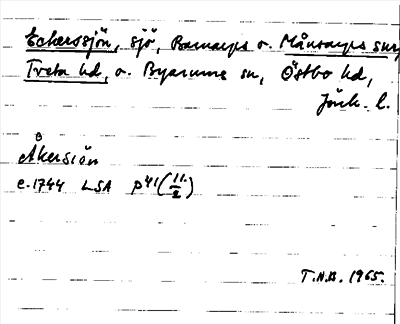 Eckersjön, sjö, Barnarps o. Månsarps snr,
Tveta hd, o. Byarums sn, Östbo hd,
Jönk. l.
Åkersiön
c. 1744 LSA P 41 (11/2)
T.N.B. 1965.